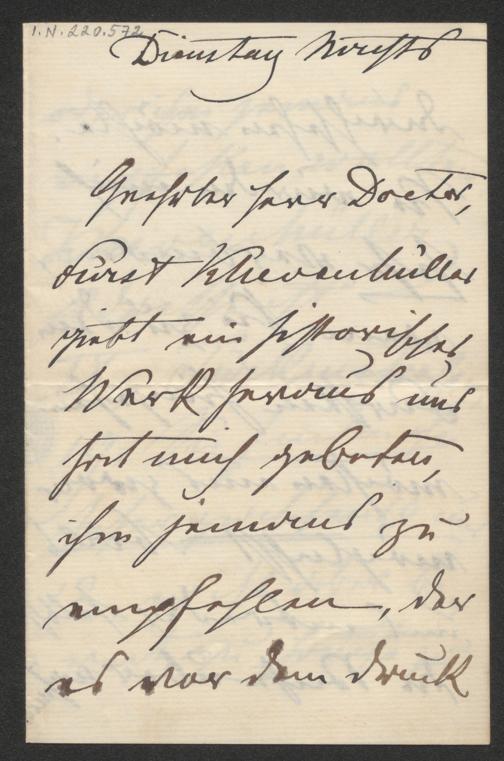 I.N. 220.572
Dienstag Nachts
Geehrter Herr Doctor,
Fürst Khevenhüller
giebt ein historisches
Werk heraus und
hat mich gebeten,
ihm jemand zu
empfehlen, der
es vor dem Druck